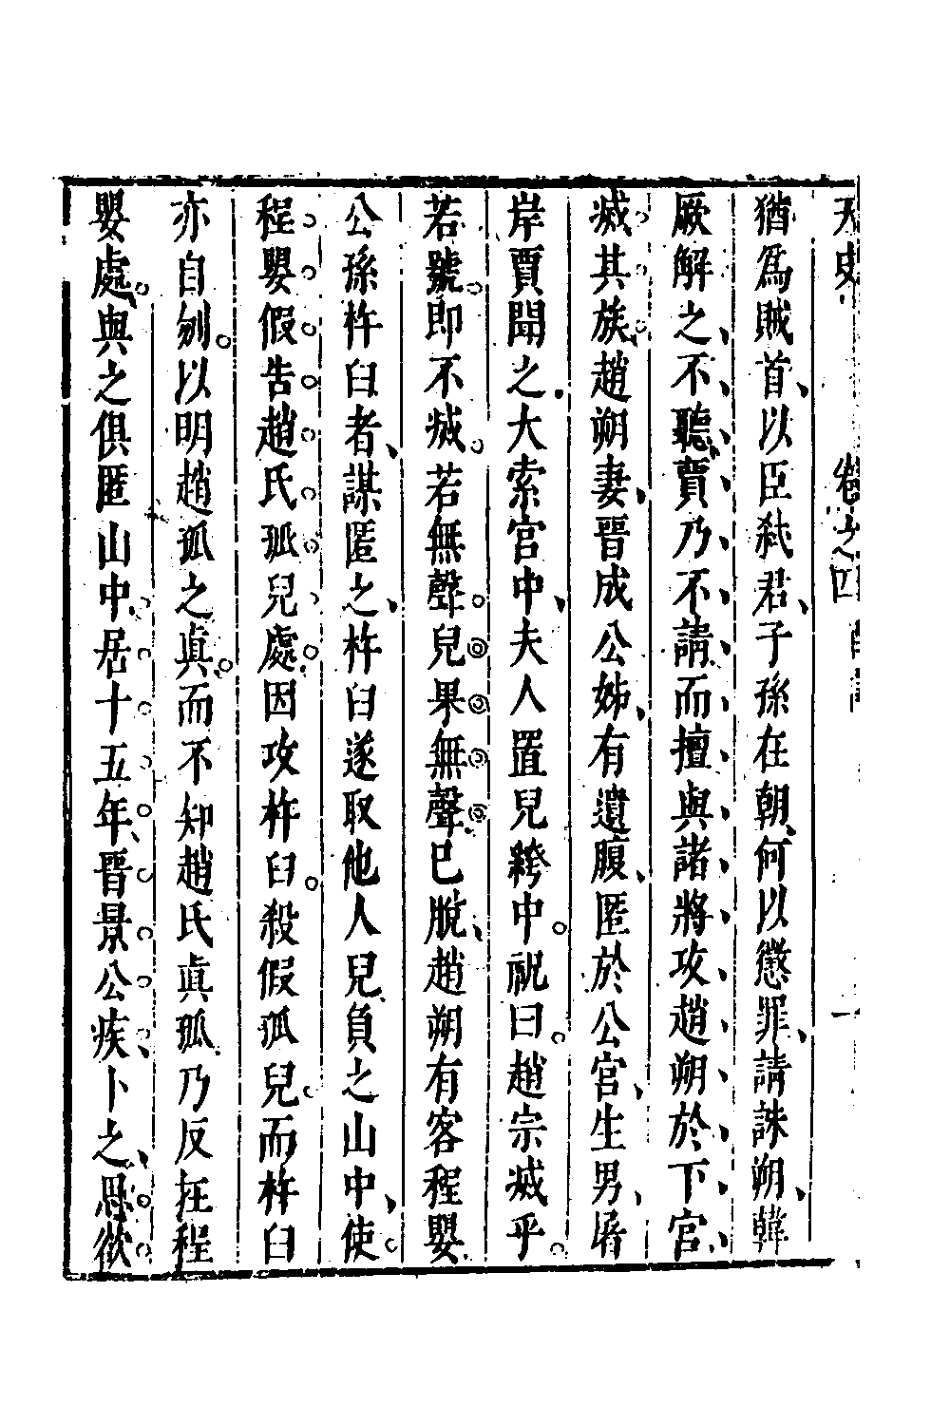 天史 卷之四 一
猶爲賊首以臣弑君子孫在朝何以懲罪請誅朔韓
厥解之不聽賈乃不請而擅與諸將攻趙朔於下宮
滅其族趙朔妻晉成公姊有遺腹匿於公宮生男屠
岸賈聞之大索宮中夫人置兒絝中祝曰趙宗滅乎
若號即不滅若無聲兒果無聲已脫趙朔有客程嬰
公孫杵臼者謀匿之杵臼遂取他人兒負之山中使
程嬰假告趙氏孤兒處因攻杵臼殺假孤兒而杵臼
亦自刎以明趙孤之眞而不知趙氏眞孤乃反在程
嬰處與之俱匿山中居十五年晉景公疾卜之思欲